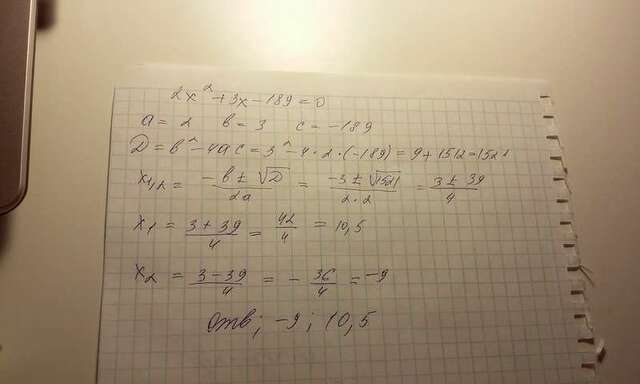 2x² + 3x - 189 = 0
a = 2 в = 3 c = -189
D = в² - 4ac = 3² - 4 · 2 · (-189) = 9 + 1512 = 1521
x1,2 = (-в ± √D)/2a = (-3 ± √1521)/(2·2) = (3 ± 39)/4
x1 = (3 + 39)/4 = 42/4 = 10,5
x2 = (3 - 39)/4 = - 36/4 = -9
Отв; -9; 10,5